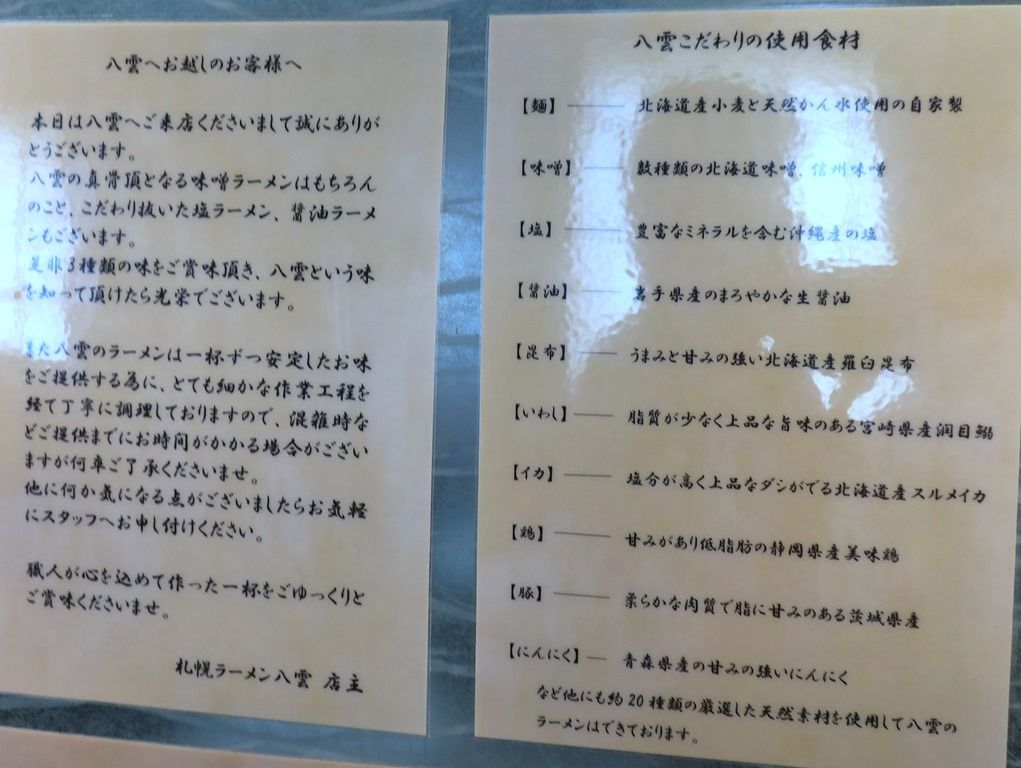 八雲へお越しのお客様へ
本日は八雲へご来店くださいまして誠にありが
とうございます。
八雲の真骨頂となる味噌ラーメンはもちろん
のこと、こだわり抜いた塩ラーメン、醤油ラーメ
ンもございます。
是非3種類の味をご賞味頂き、八雲という味
を知って頂けたら光栄でございます。
また八雲のラーメンは一杯ずつ安定したお味
をご提供する為に、とても細かな作業工程を
経て丁寧に調理しておりますので、混雑時な
どご提供までにお時間がかかる場合がござい
ますが何卒ご了承くださいませ。
他に何か気になる点がございましたらお気軽
にスタッフへお申し付けください。
職人が心を込めて作った一杯をごゆっくりと
ご賞味くださいませ。
札幌ラーメン八雲 店主
八雲こだわりの使用食材
【麺】 ── 北海道産小麦と天然かん水使用の自家製
【味噌】 ── 数種類の北海道味噌、信州味噌
【塩】 ── 豊富なミネラルを含む沖縄産の塩
【醤油】 ── 岩手県産のまろやかな生醤油
【昆布】 ── うまみと甘みの強い北海道産羅臼昆布
【いわし】 ── 脂質が少なく上品な旨味のある宮崎県産潤目鰯
【イカ】 ── 塩分が高く上品なダシがでる北海道産スルメイカ
【鶏】 ── 甘みがあり低脂肪の静岡県産美味鶏
【豚】 ── 柔らかな肉質で脂に甘みのある茨城県産
【にんにく】 ─ 青森県産の甘みの強いにんにく
など他にも約20種類の厳選した天然素材を使用して八雲の
ラーメンはできております。